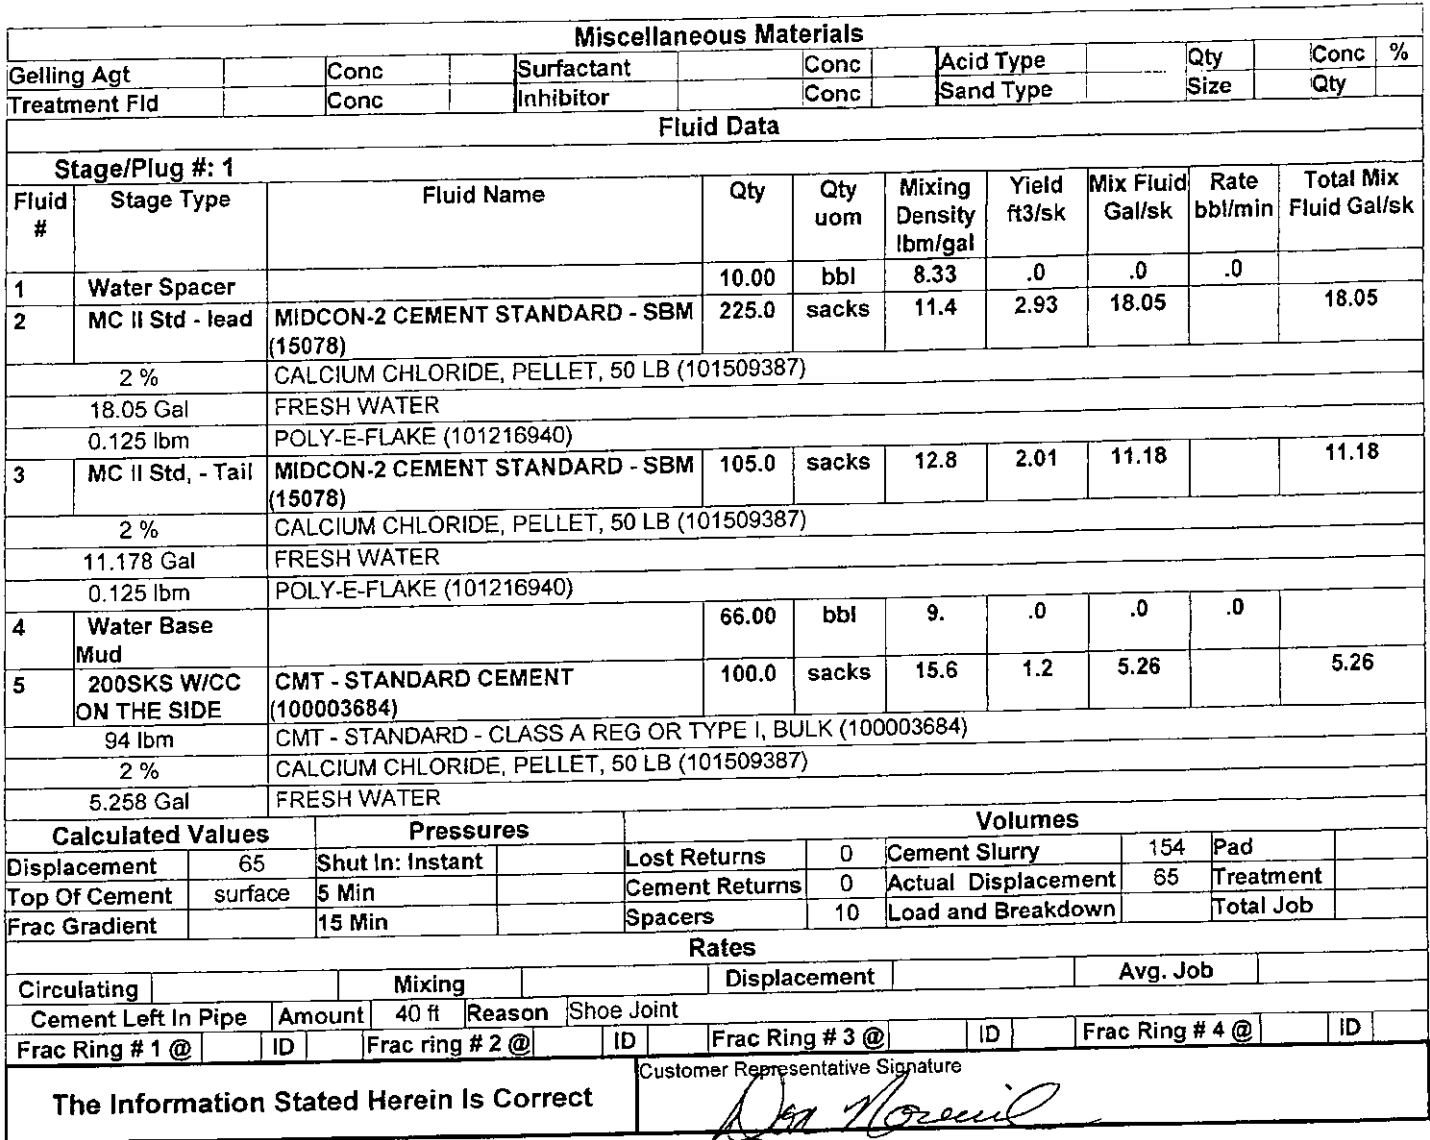 Miscellaneous Materials
Gelling Agt Conc Surfactant Conc Acid Type Qty Conc %
Treatment Fld Conc Inhibitor Conc Sand Type Size Qty
Fluid Data
Stage/Plug #: 1
Fluid # Stage Type Fluid Name Qty Qty uom Mixing Density lbm/gal Yield ft3/sk Mix Fluid Gal/sk Rate bbl/min Total Mix Fluid Gal/sk
1 Water Spacer 10.00 bbl 8.33 .0 .0 .0
2 MC II Std - lead MIDCON-2 CEMENT STANDARD - SBM (15078) 225.0 sacks 11.4 2.93 18.05 18.05
2 % CALCIUM CHLORIDE, PELLET, 50 LB (101509387)
18.05 Gal FRESH WATER
0.125 lbm POLY-E-FLAKE (101216940)
3 MC II Std, - Tail MIDCON-2 CEMENT STANDARD - SBM (15078) 105.0 sacks 12.8 2.01 11.18 11.18
2 % CALCIUM CHLORIDE, PELLET, 50 LB (101509387)
11.178 Gal FRESH WATER
0.125 lbm POLY-E-FLAKE (101216940)
4 Water Base Mud 66.00 bbl 9. .0 .0 .0
5 200SKS W/CC ON THE SIDE CMT - STANDARD CEMENT (100003684) 100.0 sacks 15.6 1.2 5.26 5.26
94 lbm CMT - STANDARD - CLASS A REG OR TYPE I, BULK (100003684)
2 % CALCIUM CHLORIDE, PELLET, 50 LB (101509387)
5.258 Gal FRESH WATER
Calculated Values Pressures Volumes
Displacement 65 Shut In: Instant Lost Returns 0 Cement Slurry 154 Pad
Top Of Cement surface 5 Min Cement Returns 0 Actual Displacement 65 Treatment
Frac Gradient 15 Min Spacers 10 Load and Breakdown Total Job
Rates
Circulating Mixing Displacement Avg. Job
Cement Left In Pipe Amount 40 ft Reason Shoe Joint
Frac Ring # 1 @ ID Frac ring # 2 @ ID Frac Ring # 3 @ ID Frac Ring # 4 @ ID
The Information Stated Herein Is Correct
Customer Representative Signature